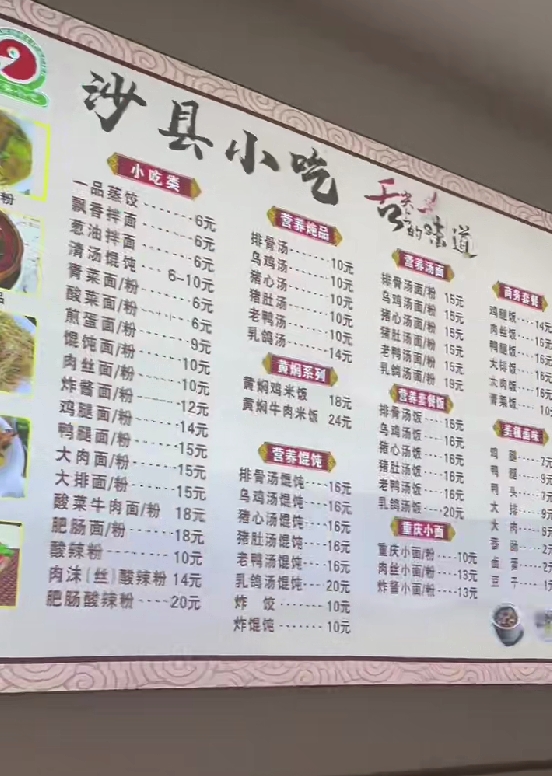 沙县小吃
舌尖上的味道
小吃类
一品蒸饺·······6元
飘香拌面·······6元
葱油拌面·······6元
清汤馄饨 6-10元
青菜面/粉······6元
酸菜面/粉······6元
煎蛋面/粉······9元
馄饨面/粉·····10元
肉丝面/粉·····10元
炸酱面/粉·····12元
鸡腿面/粉·····14元
鸭腿面/粉·····15元
大肉面/粉·····15元
大排面/粉·····15元
酸菜牛肉面/粉 18元
肥肠面/粉·····18元
酸辣粉·······10元
肉沫(丝)酸辣粉 14元
肥肠酸辣粉····20元
营养炖品
排骨汤·····10元
乌鸡汤·····10元
猪心汤·····10元
猪肚汤·····10元
老鸭汤·····10元
乳鸽汤·····14元
黄焖系列
黄焖鸡米饭 18元
黄焖牛肉米饭 24元
营养馄饨
排骨汤馄饨····16元
乌鸡汤馄饨····16元
猪心汤馄饨····16元
猪肚汤馄饨····18元
老鸭汤馄饨····16元
乳鸽汤馄饨····20元
炸 饺·······10元
炸馄饨·······10元
营养汤面
排骨汤面/粉 15元
乌鸡汤面/粉 15元
猪心汤面/粉 15元
猪肚汤面/粉 15元
老鸭汤面/粉 15元
乳鸽汤面/粉 19元
营养套餐饭
排骨汤饭·····16元
乌鸡汤饭·····16元
猪心汤饭·····16元
猪肚汤饭·····16元
老鸭汤饭·····16元
乳鸽汤饭·····20元
重庆小面
重庆小面/粉···10元
肉丝小面/粉···13元
炸酱小面/粉···13元
商务套餐
鸡腿饭····14元
肉丝饭····16元
鸭腿饭····16元
大排饭····16元
大肉饭····16元
青菜饭····10
卤味
鸡 腿····7元
鸭 腿····9元
鸭 头····7元
大 排····9元
大 肉····9元
香 肠····2元
卤 蛋····2元
豆 干
粉
品